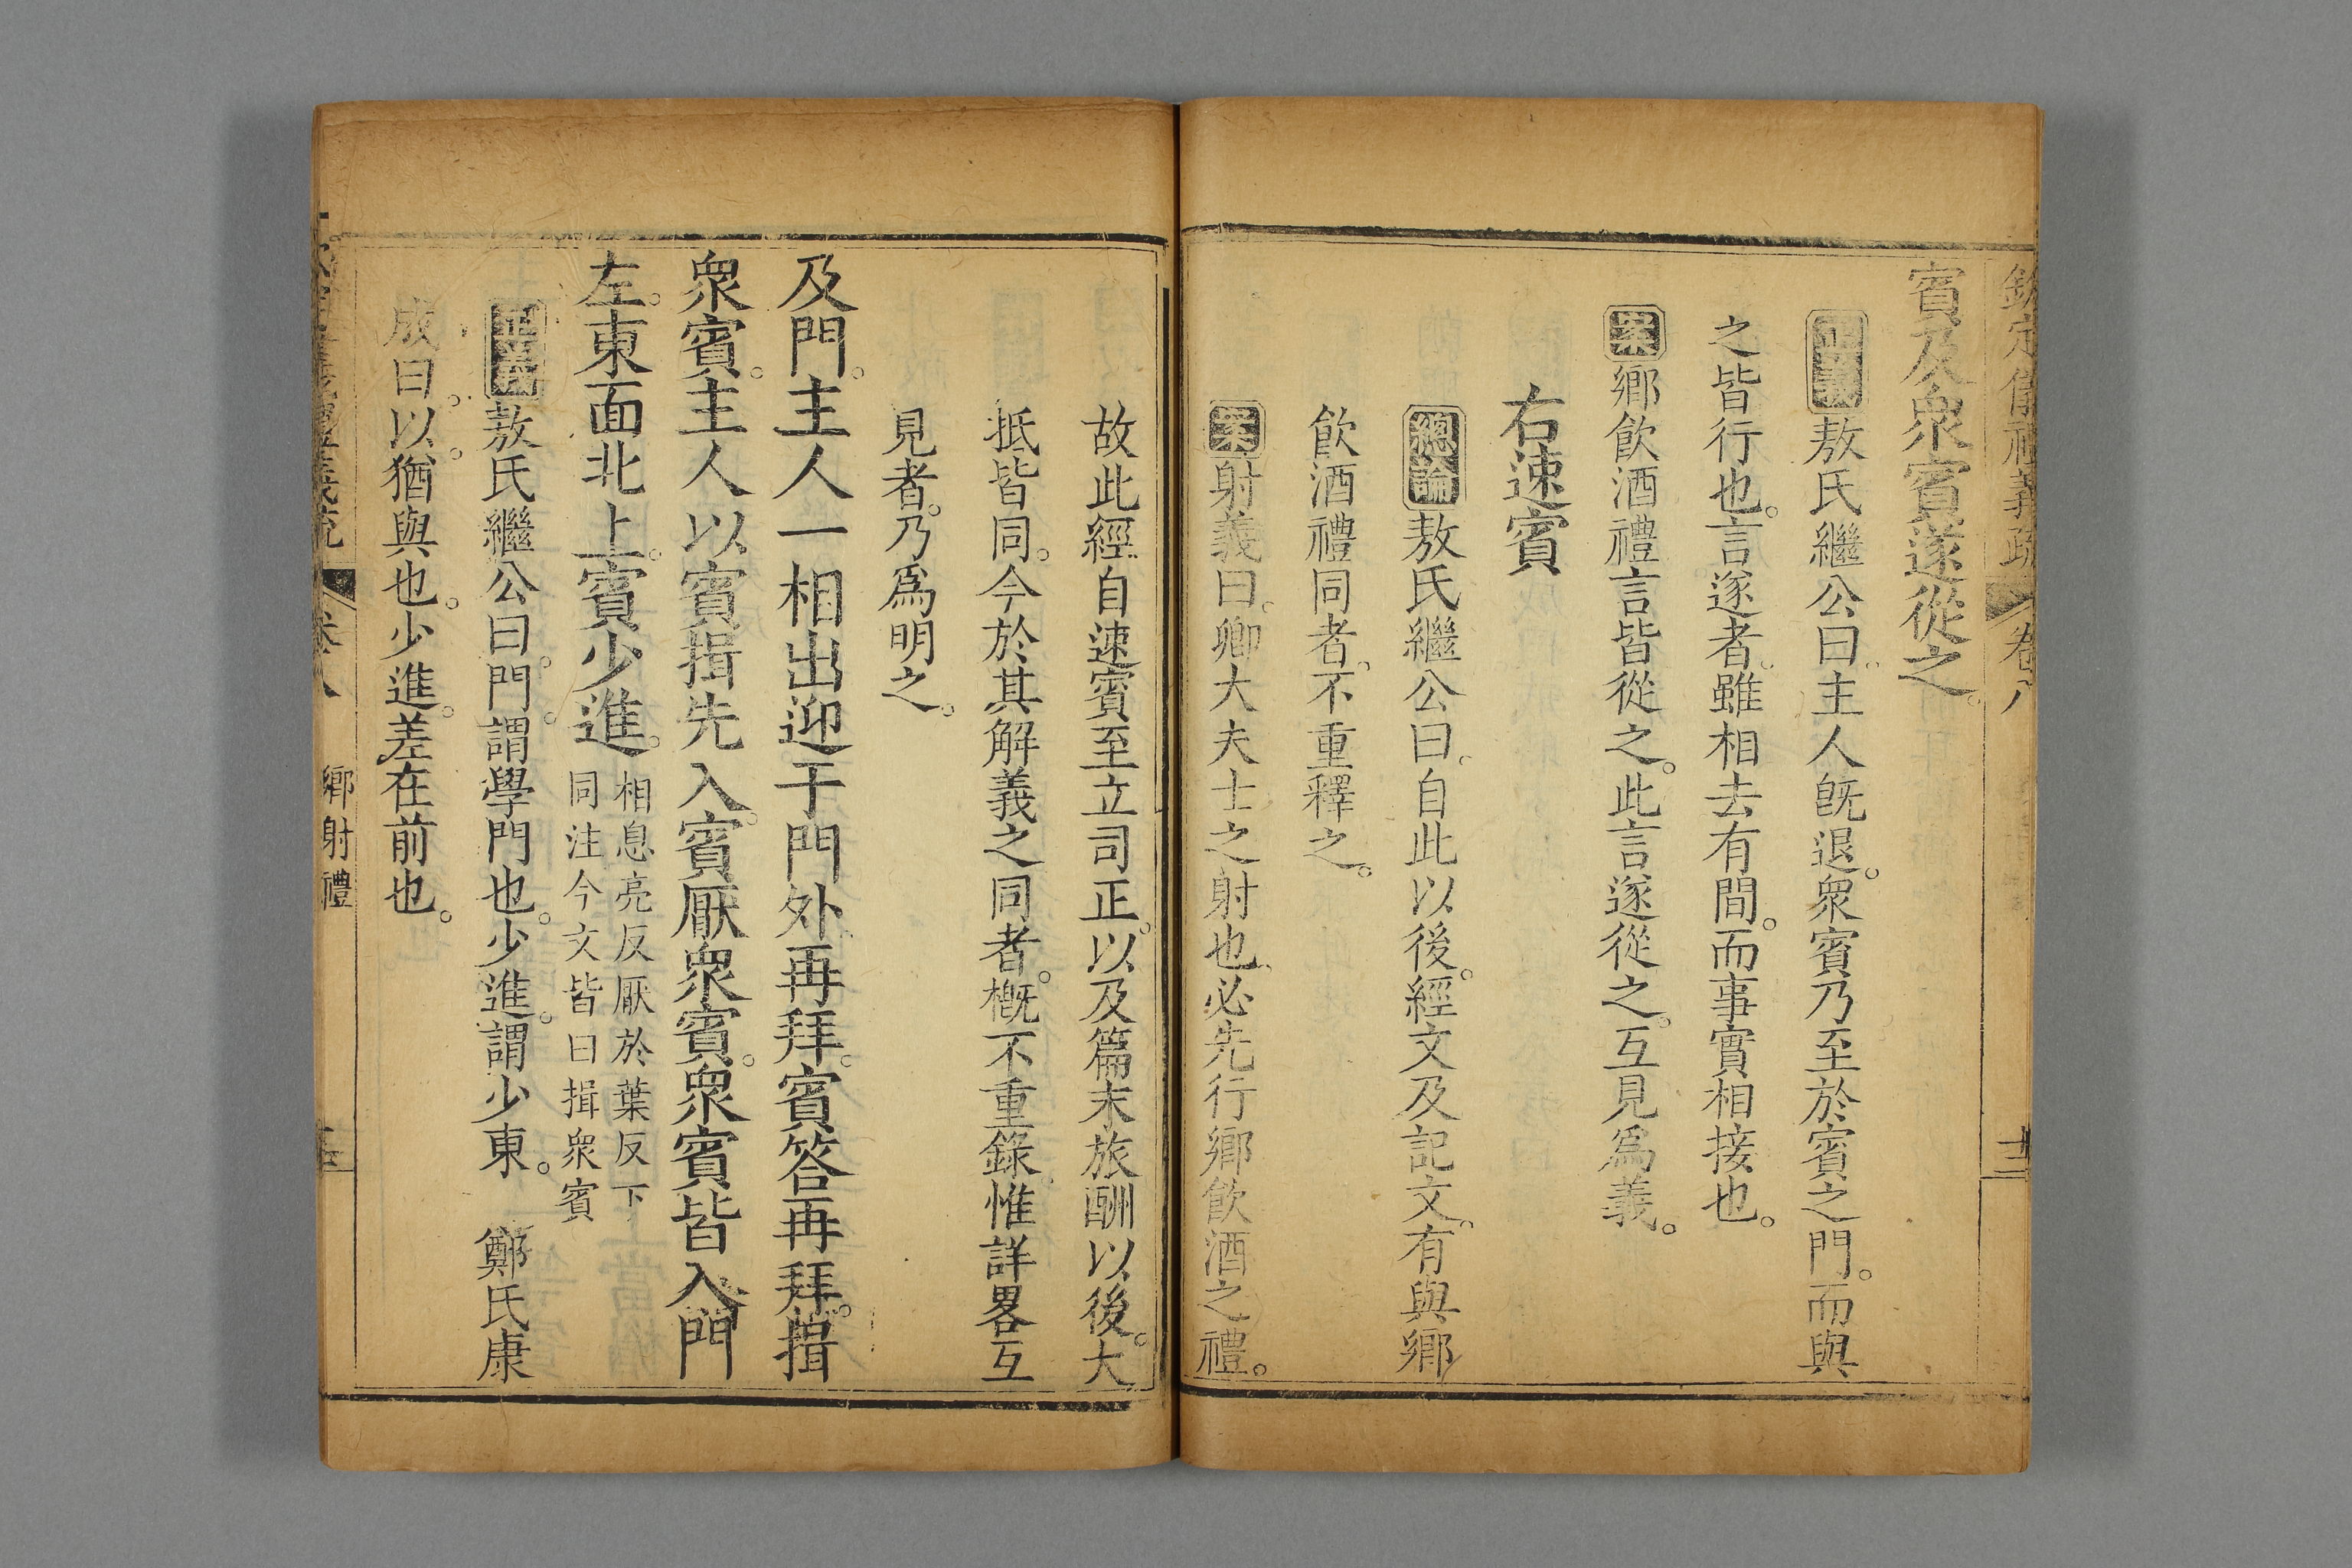 欽定儀禮義疏 卷八 十二
賓及衆賓遂從之。
正義敖氏繼公曰。主人旣退。衆賓乃至於賓之門。而與
之皆行也。言遂者。雖相去有間。而事實相接也。
案鄉飮酒禮言皆從之。此言遂從之。互見爲義。
右速賓
總論敖氏繼公曰。自此以後。經文及記文。有與鄉
飮酒禮同者。不重釋之。
案射義曰。卿大夫士之射也。必先行鄉飮酒之禮。
故此經自速賓至立司正。以及篇末旅酬以後。大
抵皆同。今於其解義之同者。槪不重錄。惟詳畧互
見者。乃爲明之。
及門。主人一相出迎于門外。再拜。賓答再拜。揖
衆賓。主人以賓揖先入。賓厭衆賓。衆賓皆入門
左。東面北上。賓少進。相息亮反厭於葉反下
同注今文皆曰揖衆賓
正義敖氏繼公曰。門。謂學門也。少進。謂少東。 鄭氏康
成曰。以。猶與也。少進。差在前也。
卷八 鄉射禮